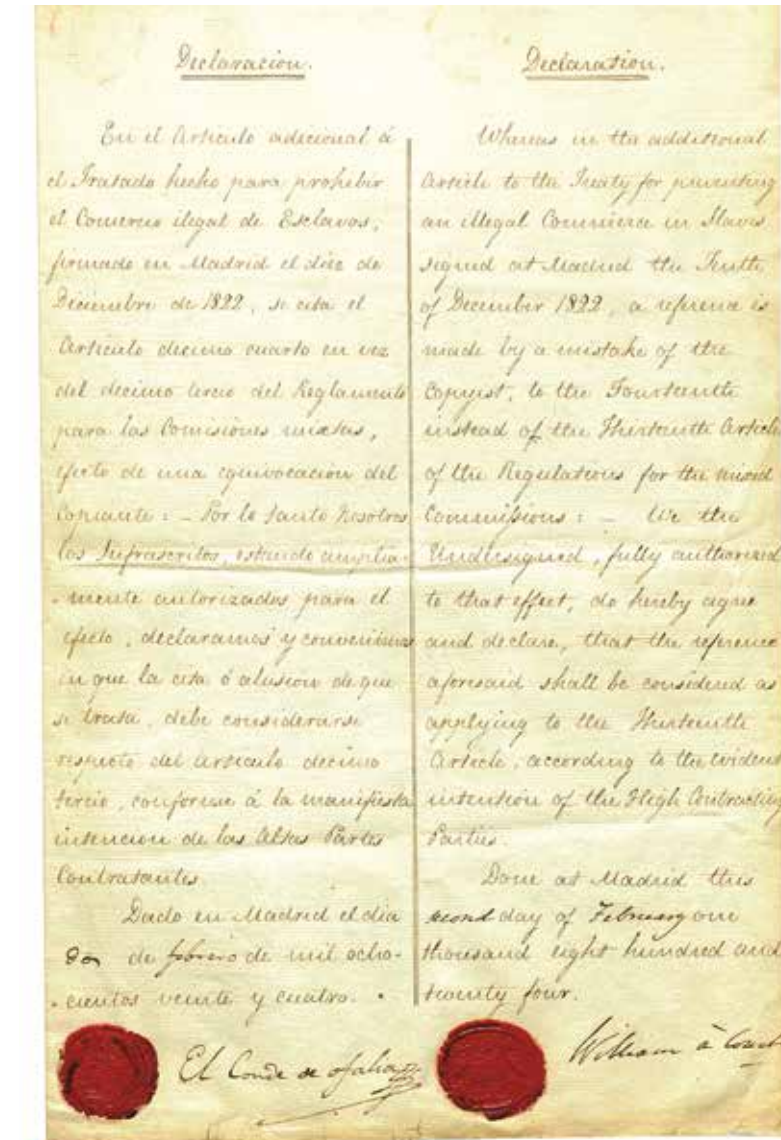 Declaracion.
En el Articulo adicional á
el Tratado hecho para prohibir
el Comercio ilegal de Esclavos,
firmado en Madrid el diez de
Diciembre de 1822, se cita el
Articulo decimo cuarto en vez
del decimo tercio del Reglamento
para las Comisiones mixtas,
efecto de una equivocacion del
Copiante: - Por lo tanto Nosotros
los Infrascritos, estando amplia-
-mente autorizados para el
efecto, declaramos y convenimos
en que la cita ó alusion de que
se trata, debe considerarse
respecto del Articulo decimo
tercio, conforme á la manifiesta
intencion de las Altas Partes
Contratantes.
Dado en Madrid el dia
dos de febrero de mil ocho-
-cientos veinte y cuatro.
El Conde de Ofalia
Declaration.
Whereas in the additional
Article to the Treaty for preventing
an illegal Commerce in Slaves
signed at Madrid the Tenth
of December 1822, a reference is
made by a mistake of the
Copyist, to the Fourteenth
instead of the Thirteenth Article
of the Regulations for the mixed
Commissions: - We the
Undersigned, fully authorized
to that effect, do hereby agree
and declare, that the reference
aforesaid shall be considered as
applying to the Thirteenth
Article, according to the evident
intention of the High Contracting
Parties.
Done at Madrid this
second day of February one
thousand eight hundred and
twenty four.
William à Court